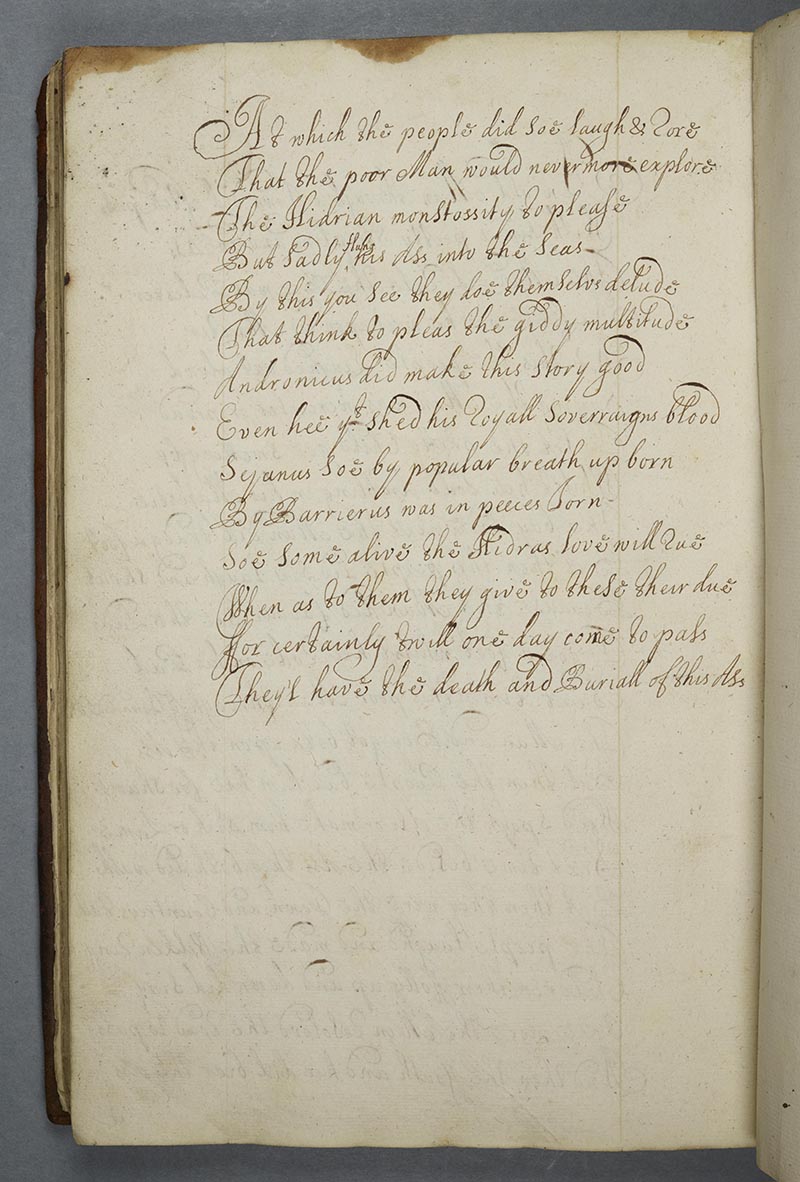 At which the people did soe laugh & Rore
That the poor Man would nevermore explore
The Hidrian monstossity to please
But sadly flung his Ass into the Seas
By this you see they doe themselvs delude
That think to pleas the giddy multitude
Andronicus did make this story good
Even hee yt shed his Royall Soverraigns blood
Sejanus soe by popular breath up born
By Barrierus was in peeces Torn
Soe some alive the Hidras love will Rue
When as to them they give to these their due
ffor certainly twill one day come to pass
They'l have the death and Buriall of this Ass